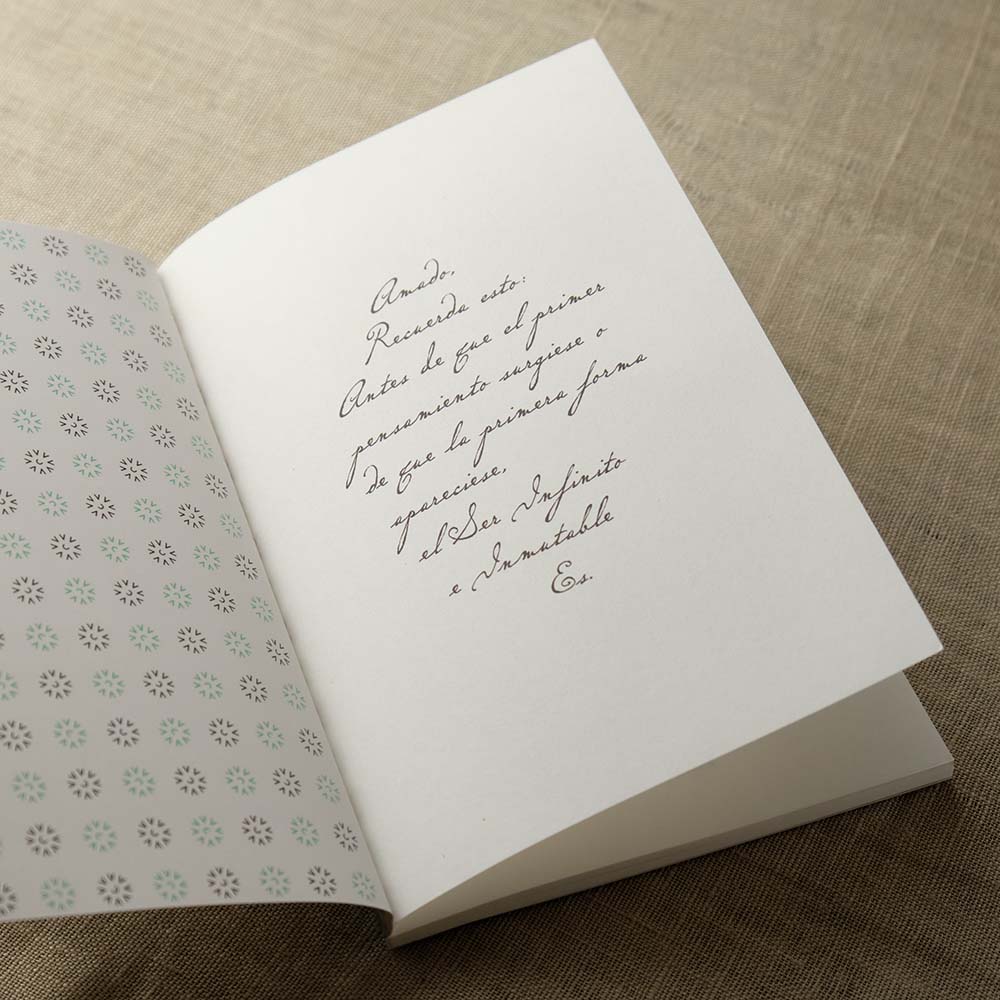 Amado,
Recuerda esto:
Antes de que el primer
pensamiento surgiese o
de que la primera forma
apareciese,
el Ser Infinito
e Inmutable
Es.